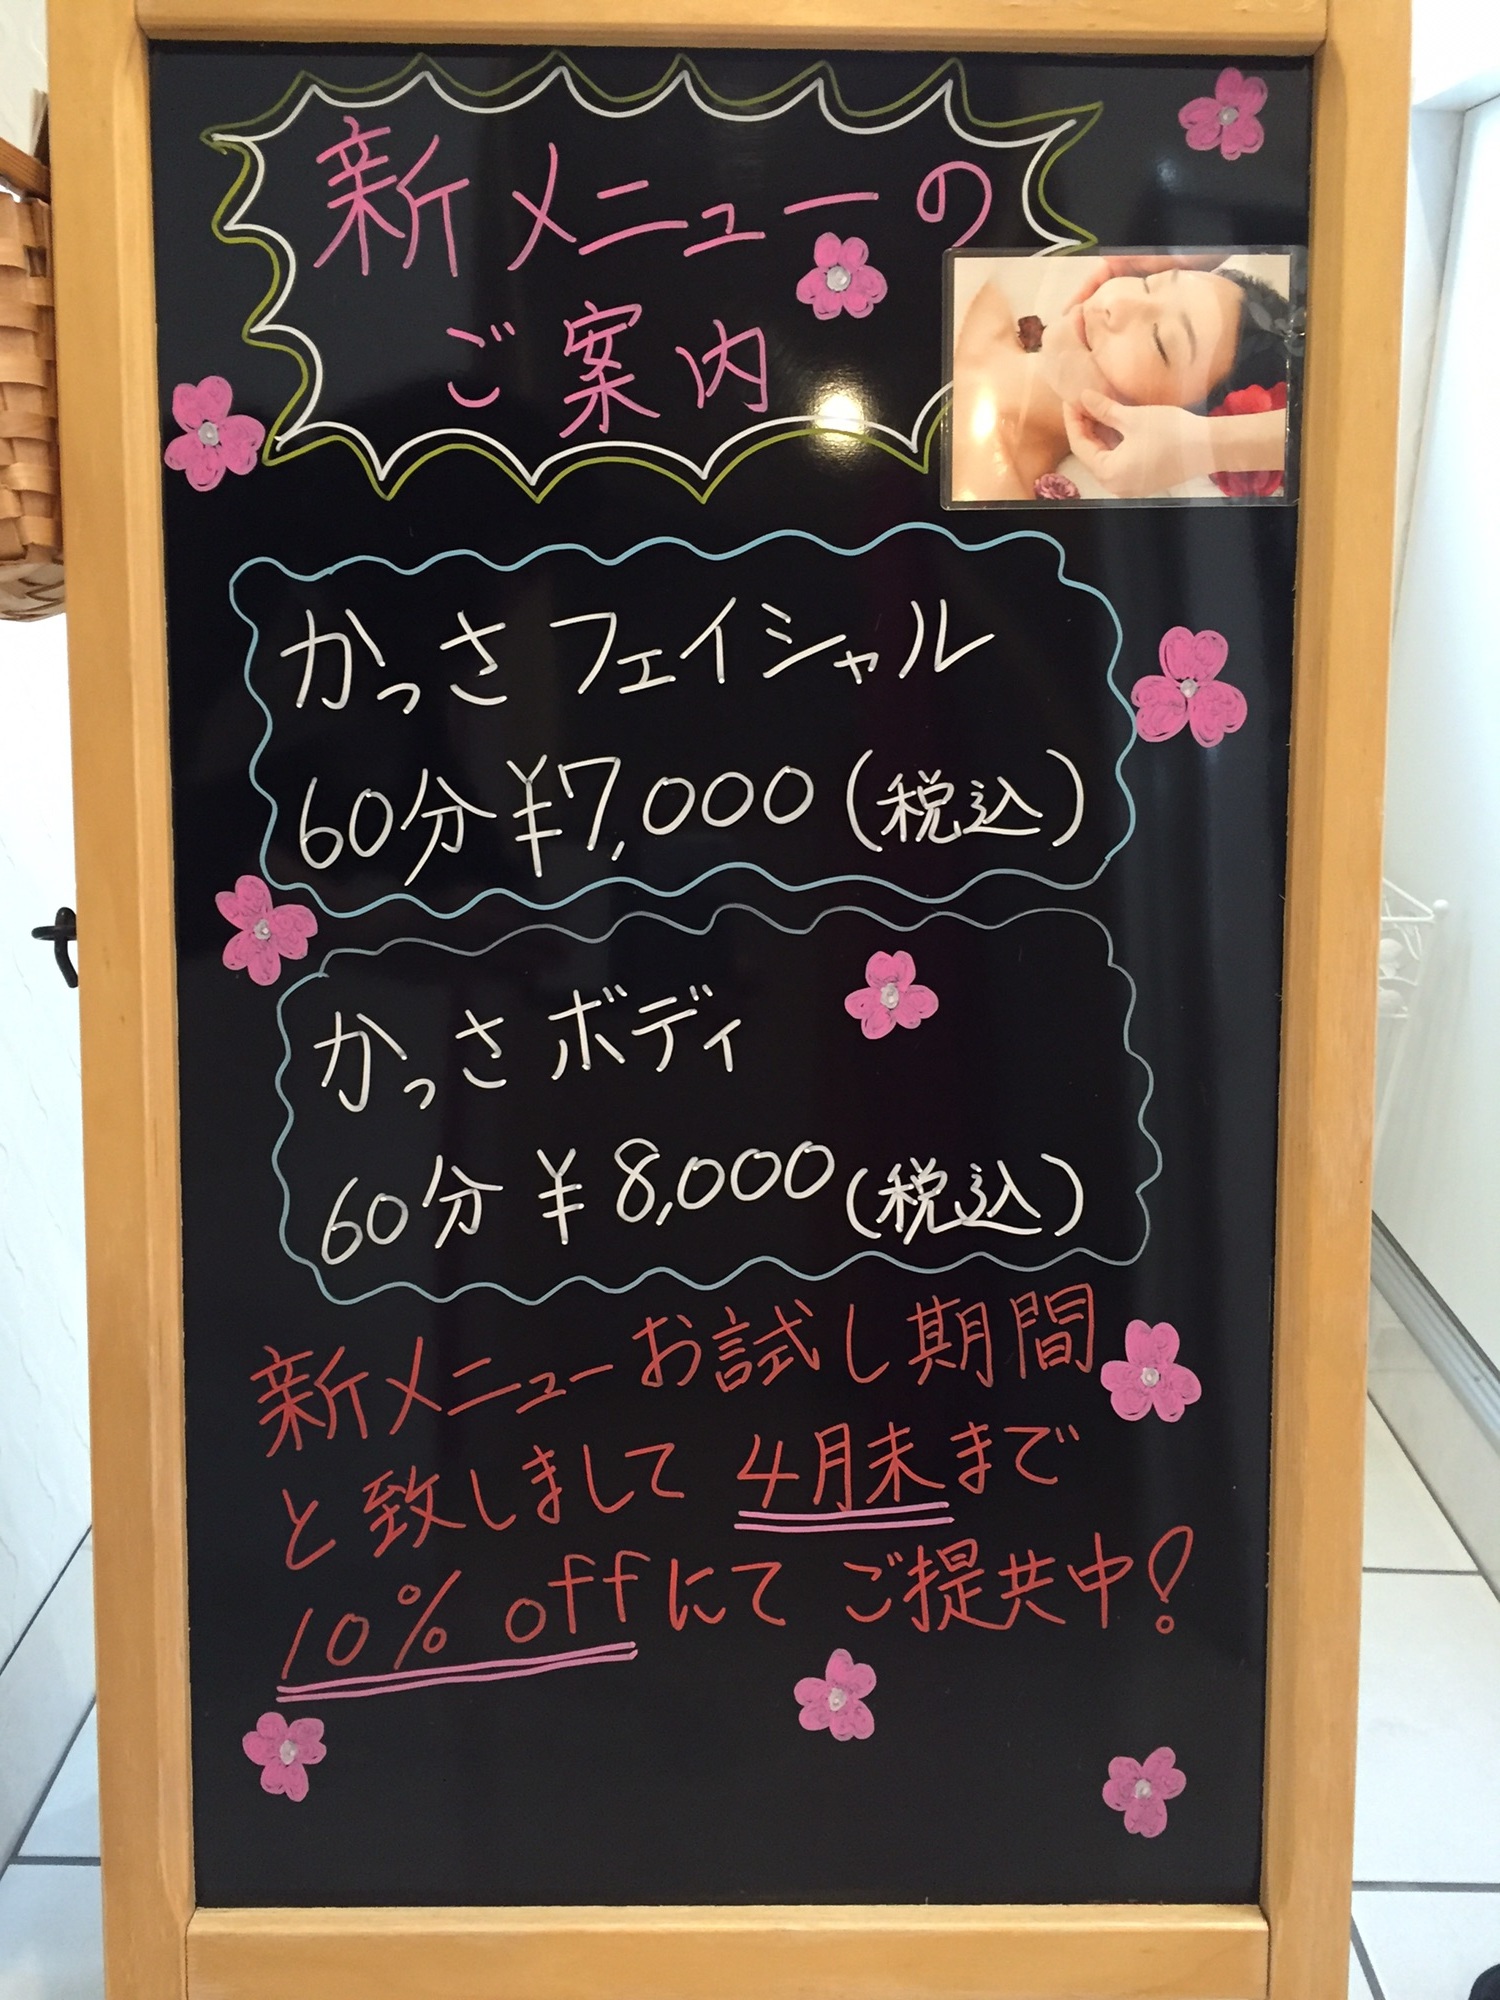 新メニューの
ご案内
かっさフェイシャル
60分¥7,000(税込)
かっさボディ
60分¥8,000(税込)
新メニューお試し期間
と致しまして4月末まで
10% offにてご提共中!